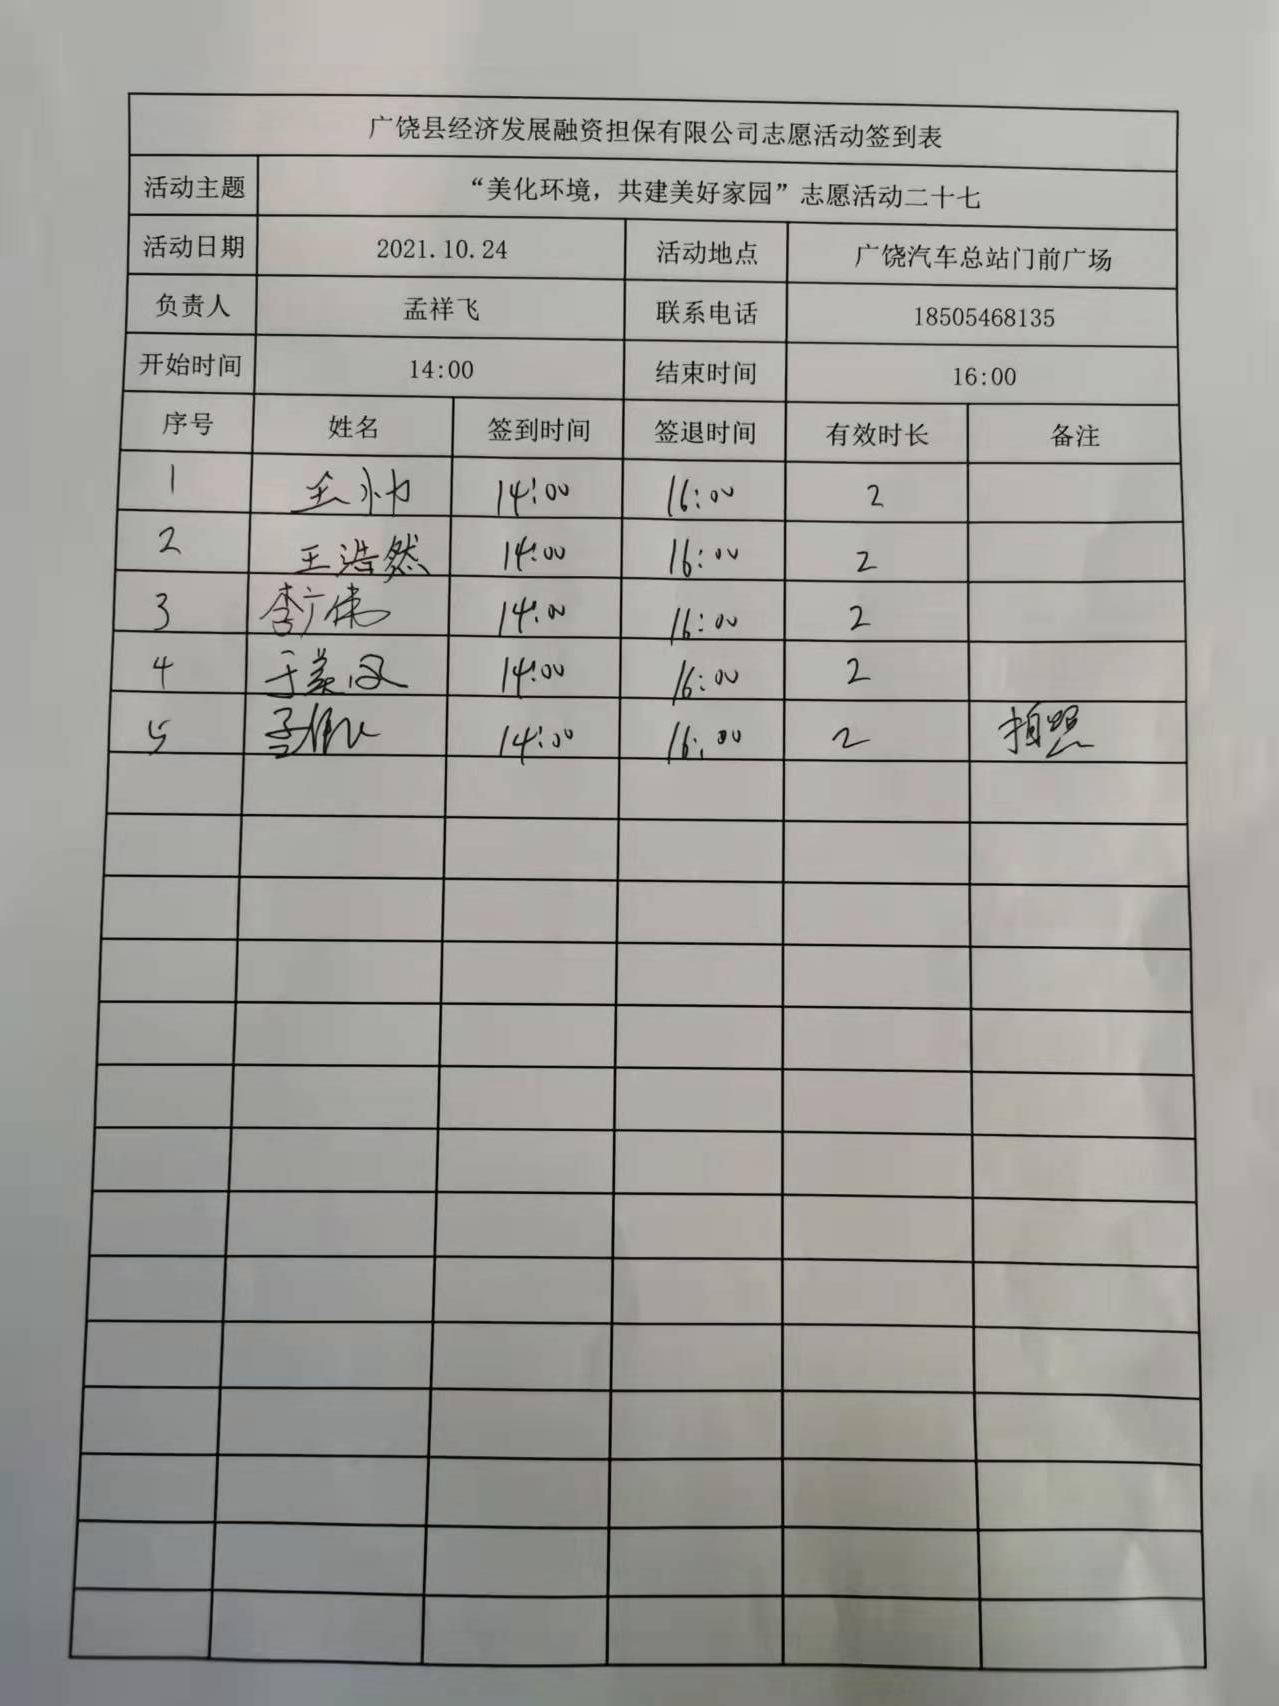 广饶县经济发展融资担保有限公司志愿活动签到表
活动主题 “美化环境，共建美好家园”志愿活动二十七
活动日期 2021.10.24 活动地点 广饶汽车总站门前广场
负责人 孟祥飞 联系电话 18505468135
开始时间 14:00 结束时间 16:00
序号 姓名 签到时间 签退时间 有效时长 备注
1 王帅 14:00 16:00 2
2 王浩然 14:00 16:00 2
3 李广伟 14:00 16:00 2
4 14:00 16:00 2
5 14:00 16:00 2 拍照